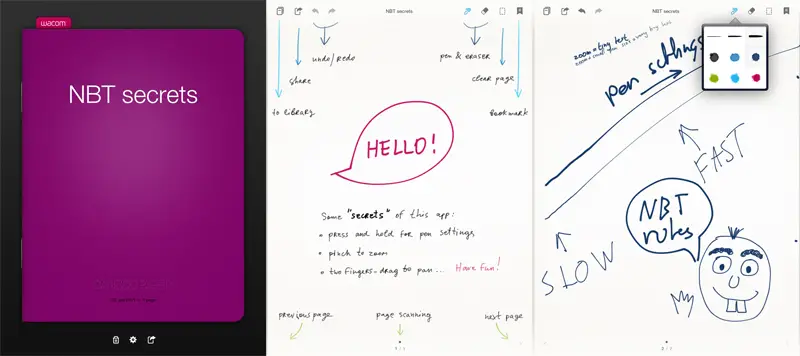 wacom
NBT secrets
NBT secrets
undo/redo
pen & eraser
share
clear page
to library
bookmark
HELLO!
Some "secrets" of this app:
press and hold for pen settings
pinch to zoom
two fingers-drag to pan... Have fun!
previous page
page scanning
next page
1 / 1
NBT secrets
zoom = tiny text
pen settings
FAST
SLOW
NBT
rules